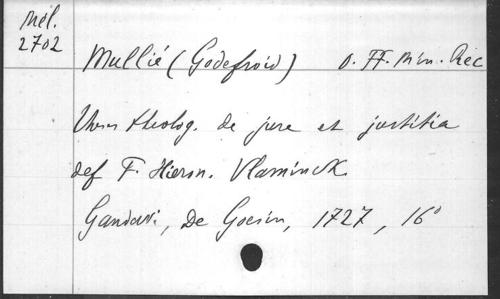 Mél.
2702
Mullié (Godefroid) O. FF. Min. Rec
theolog. de jure et justitia
def F. Hieron. Vlaminck
Gandavi, De Goesin, 1727, 16°